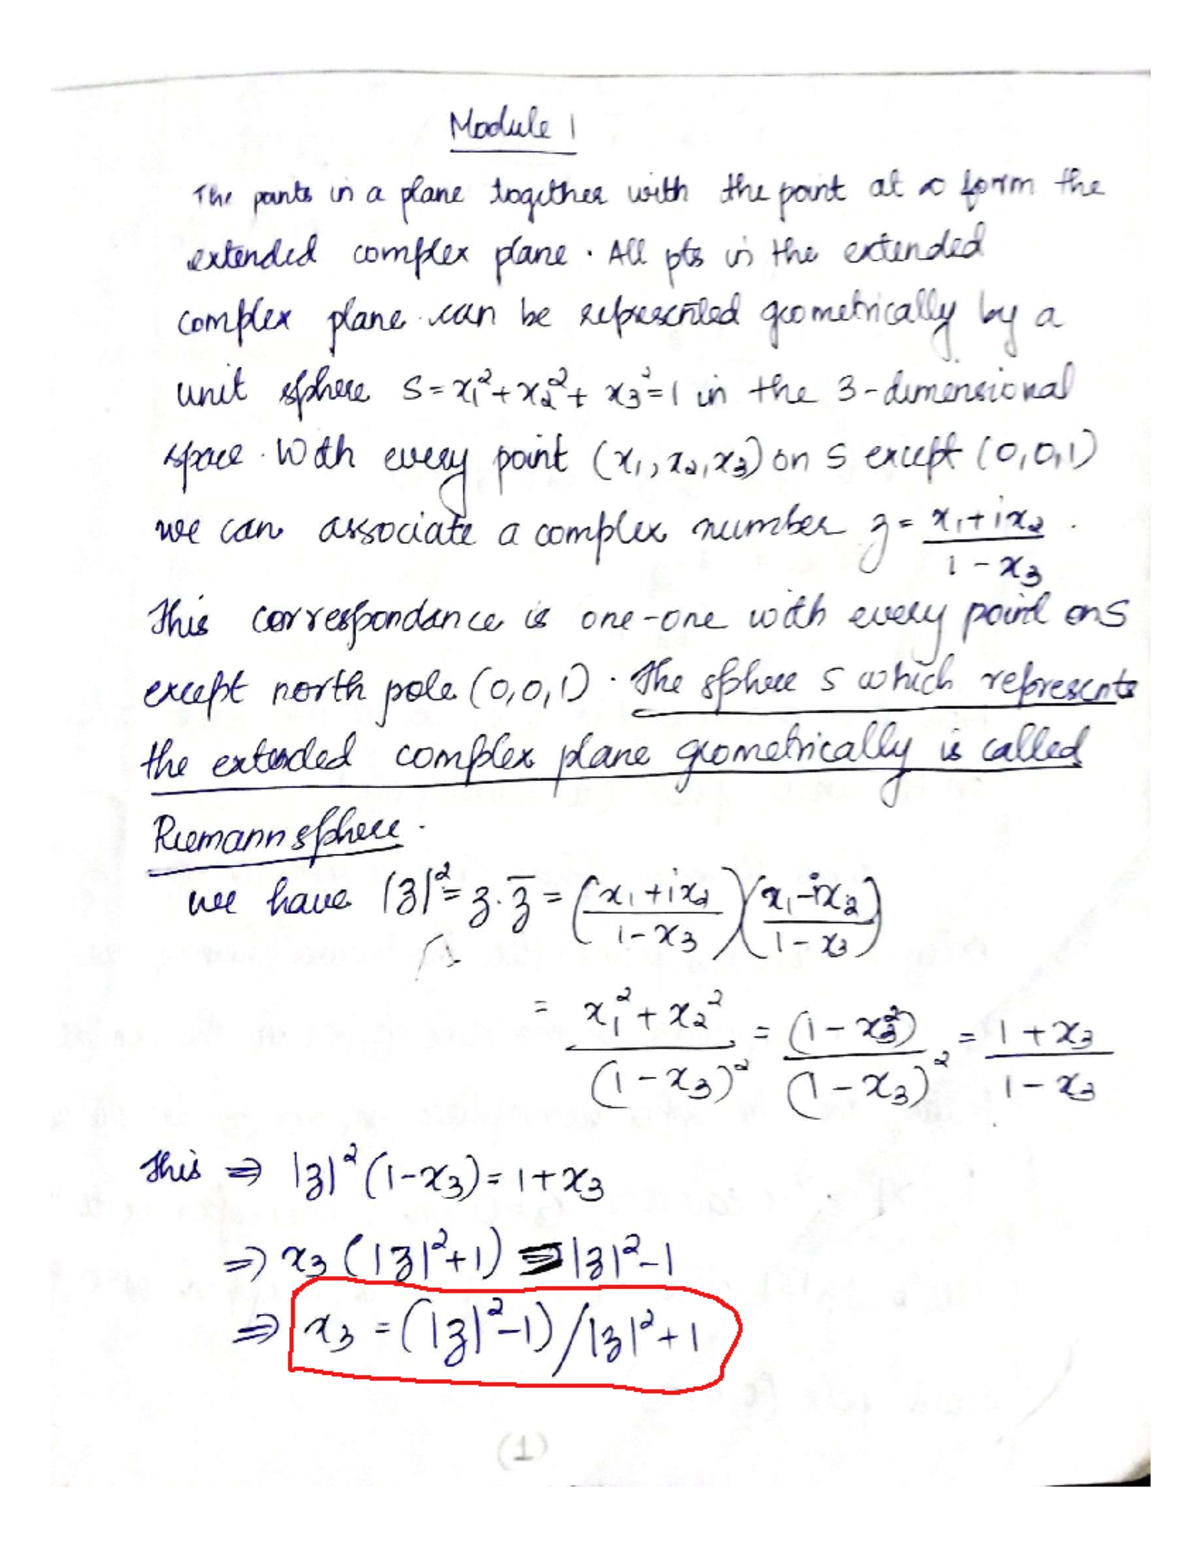 Module 1
The points in a plane together with the point at ∞ form the
extended complex plane. All pts in the extended
complex plane can be represented geometrically by a
unit sphere S = x₁² + x₂² + x₃² = 1 in the 3-dimensional
space. With every point (x₁, x₂, x₃) on S except (0,0,1)
we can associate a complex number z = (x₁ + ix₂)/(1 - x₃).
This correspondance is one-one with every point on S
except north pole (0,0,1). The sphere S which represents
the extended complex plane geometrically is called
Riemann sphere.
we have |z|² = z · z̄ = ((x₁ + ix₂)/(1 - x₃)) ((x₁ - ix₂)/(1 - x₃))
= (x₁² + x₂²)/(1 - x₃)² = (1 - x₃²)/(1 - x₃)² = (1 + x₃)/(1 - x₃)
This ⇒ |z|² (1 - x₃) = 1 + x₃
⇒ x₃ (|z|² + 1) = |z|² - 1
⇒ x₃ = (|z|² - 1) / |z|² + 1
(1)